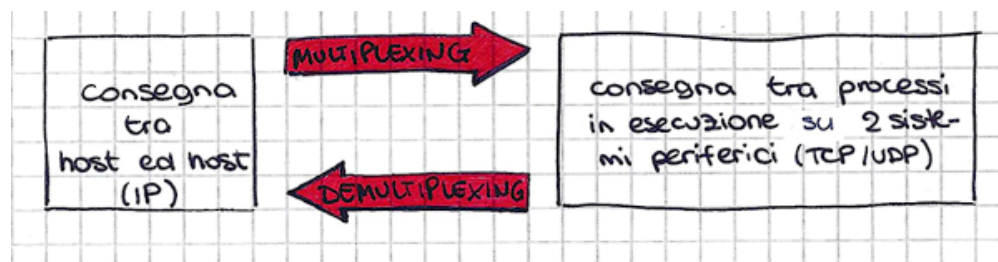 consegna
tra
host ed host
(IP)
MULTIPLEXING
DEMULTIPLEXING
consegna tra processi
in esecuzione su 2 siste-
mi periferici (TCP/UDP)